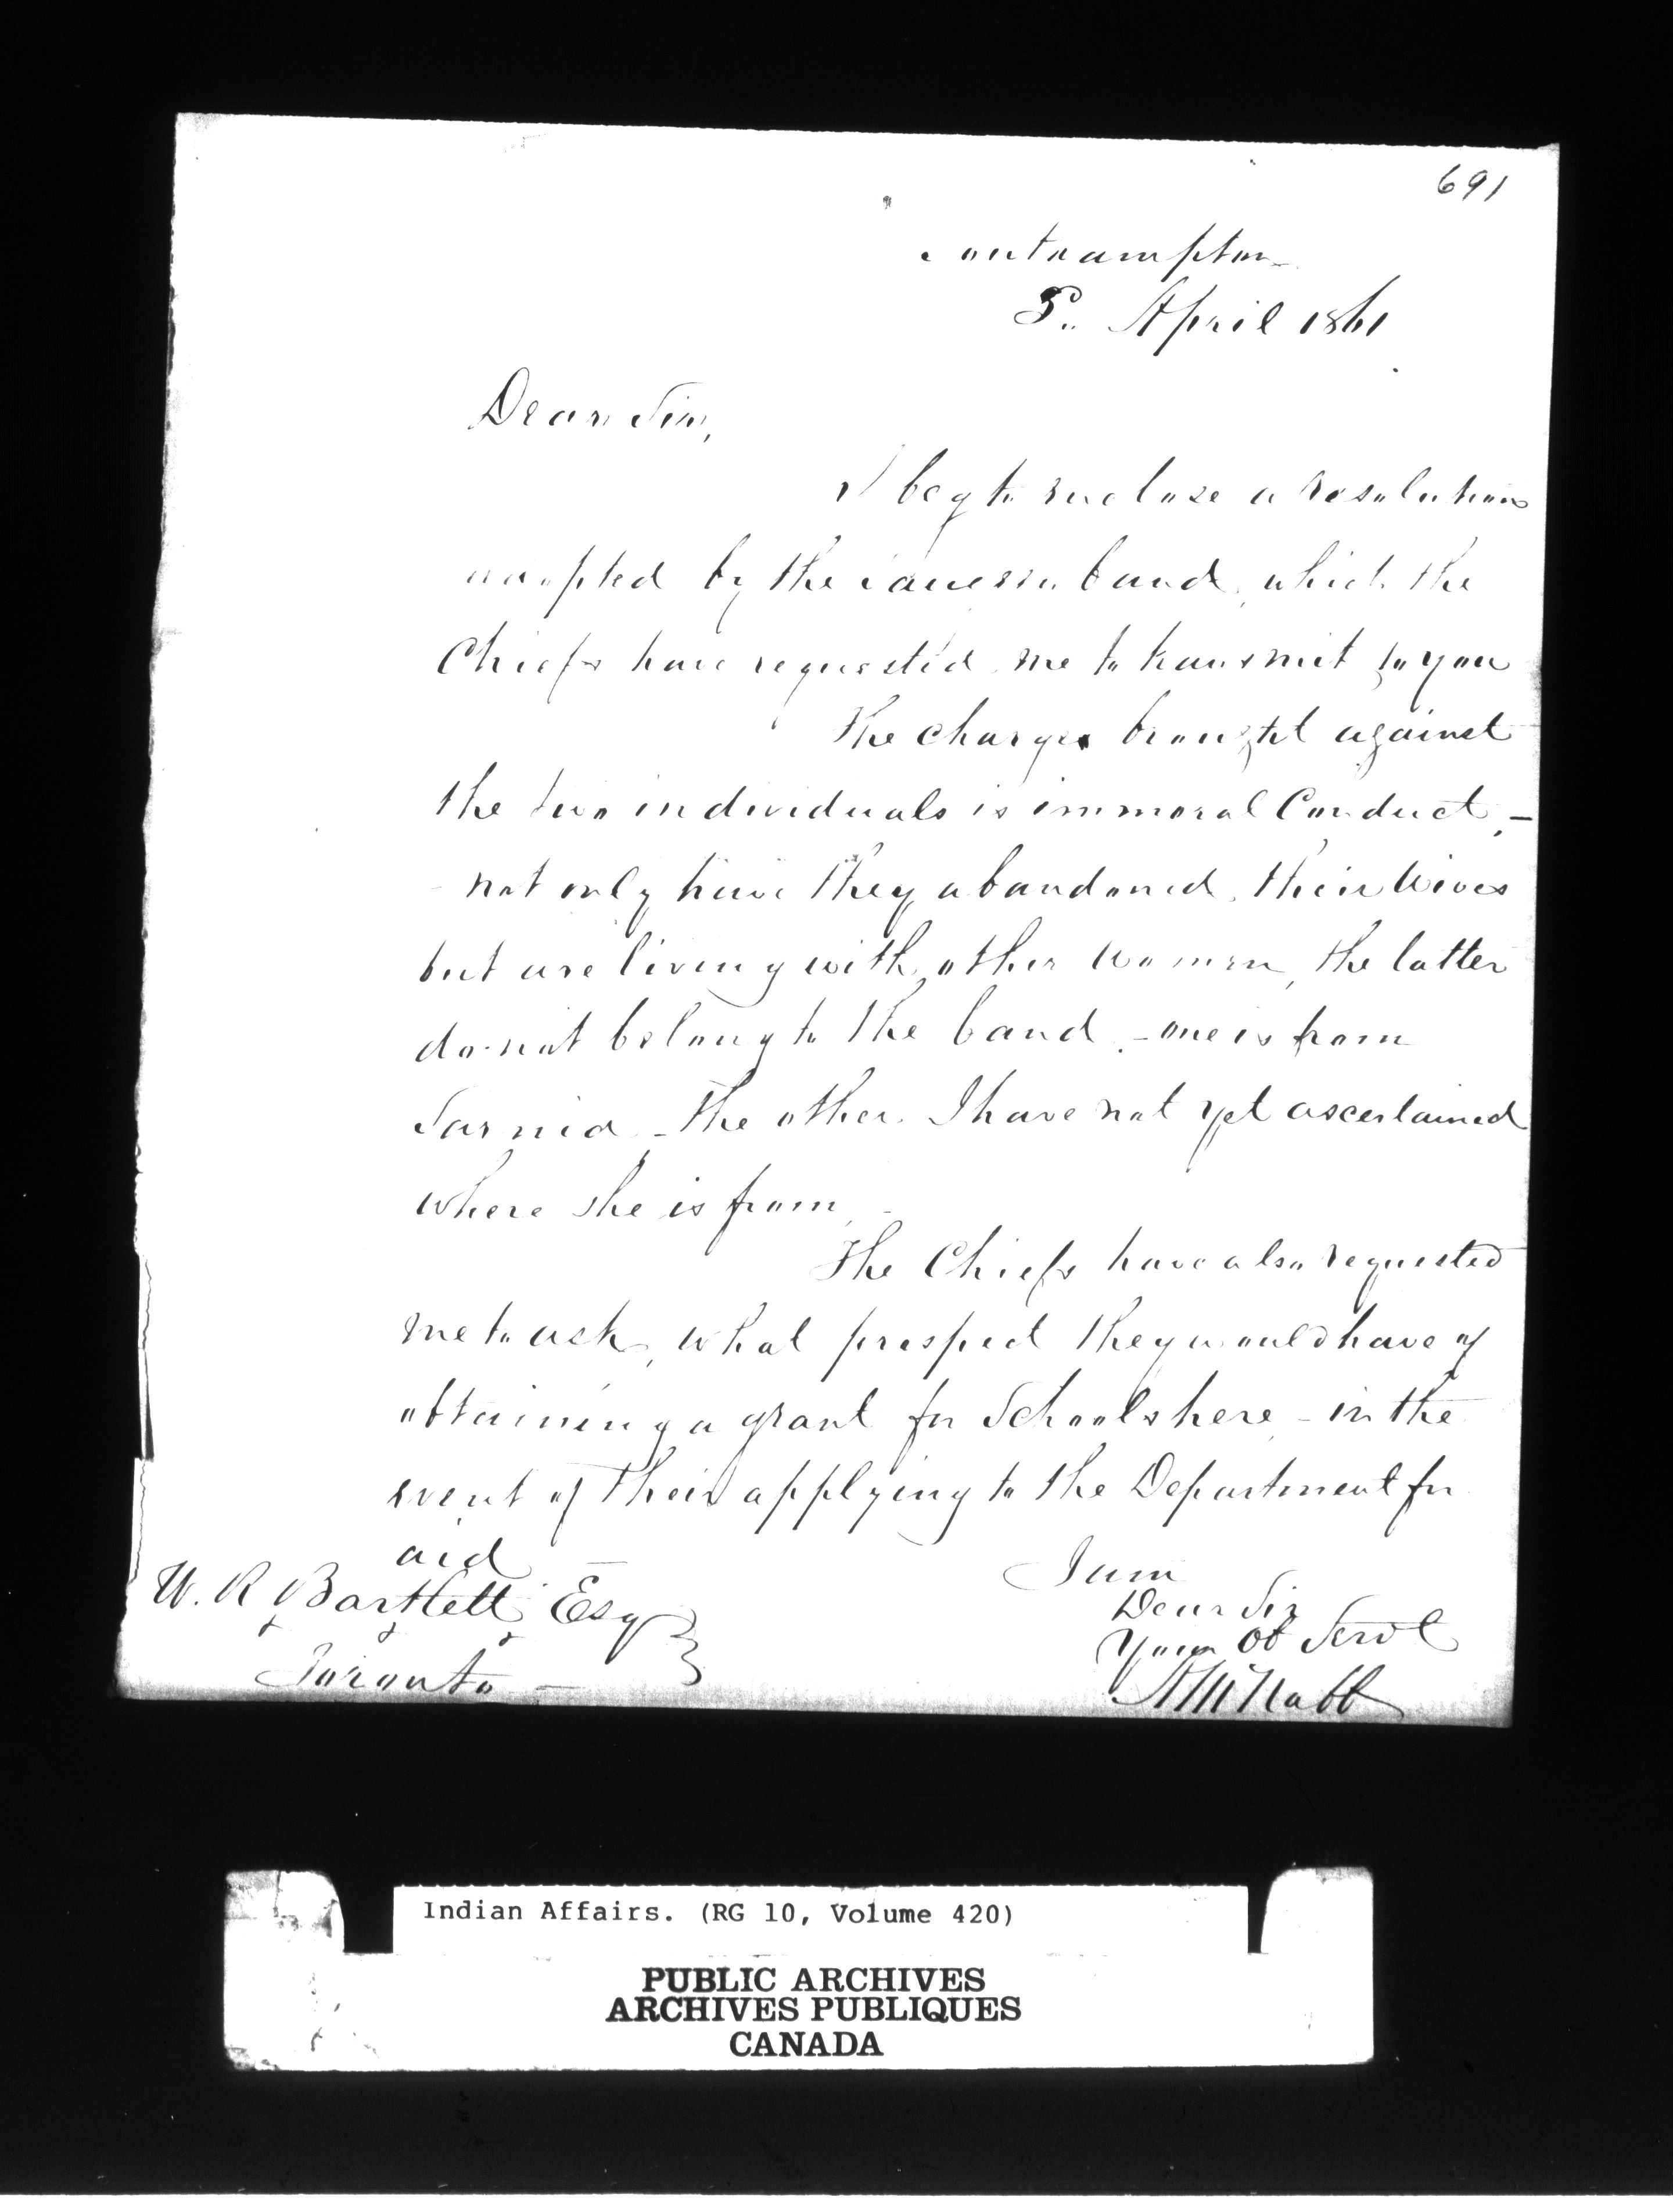 691
Southampton
5.. April 1861
Dear Sir,
I beg to enclose a resolution
adopted by the Saugeen band, which the
Chiefs have requested me to transmit to you
The charge brought against
the two individuals is immoral Conduct, -
- not only have they abandoned their Wives
but are living with other Women, the latter
do not belong to the band - one is from
Sarnia - the other I have not yet ascertained
where she is from
The Chiefs have also requested
me to ask, what prospect they would have of
obtaining a grant for Schools here - in the
event of their applying to the Department for
aid
I am
Dear Sir
Your Ob Servt
A McNabb
W. R Bartlett Esq
Toronto -
Indian Affairs. (RG 10, Volume 420)
PUBLIC ARCHIVES
ARCHIVES PUBLIQUES
CANADA